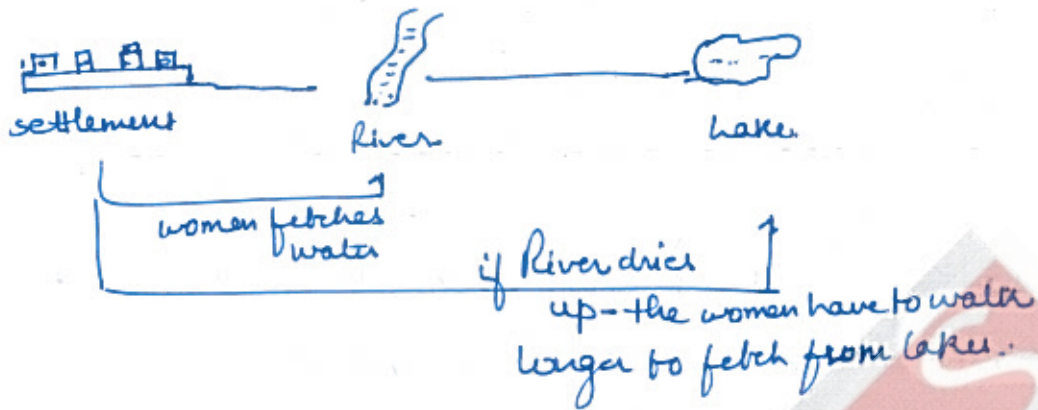 settlement
River
Lake.
women fetches
water
if River dries
up - the women have to walk
longer to fetch from lake.